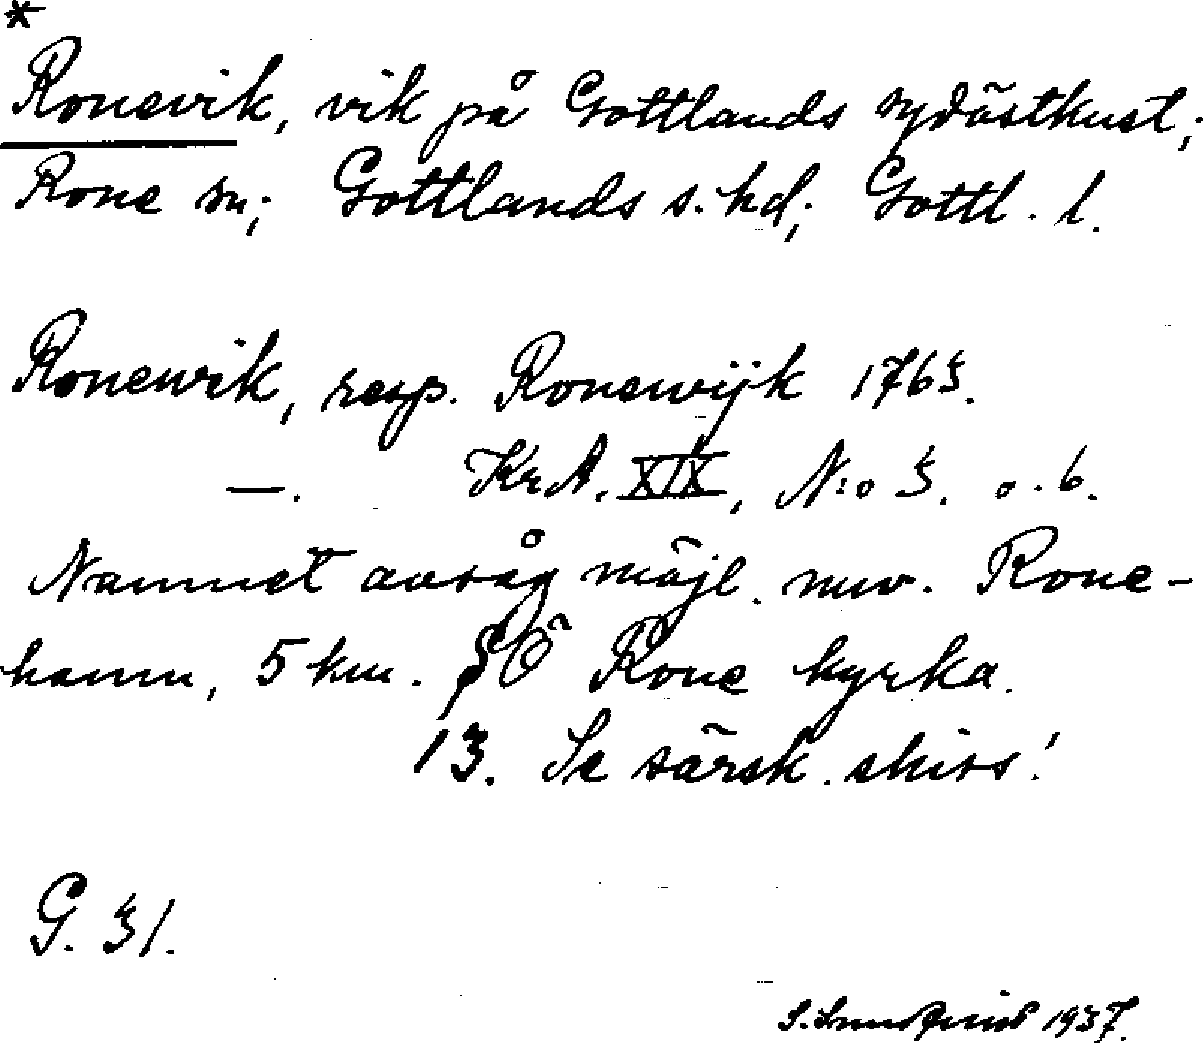 *
Ronevik, vik på Gottlands sydöstkust;
Rone sn; Gottlands s. hd; Gottl. l.
Ronewik, resp. Ronewijk 1763.
—. KrA. XIX, N:o 3. o. 6.
Namnet avsåg möjl. nuv. Rone-
hamn, 5 km. SÖ Rone kyrka.
13. Se särsk. skiss!
G. 31.
1937.